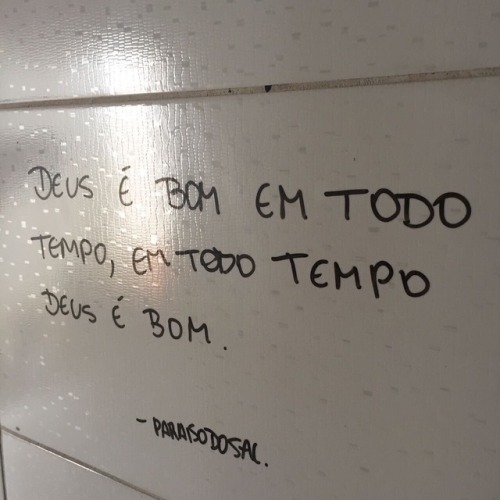 DEUS É BOM EM TODO
TEMPO, EM TODO TEMPO
DEUS É BOM.
- PARAISODOSAL.